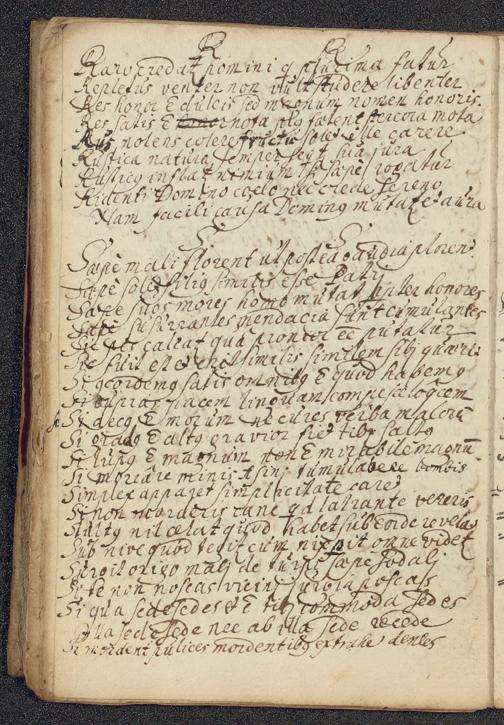 R R R
Raro credat homini q plurima fatur
Repletus venter non vult studere libenter
Res honor E dulcis sed magnum nomen honoris
Res satis E nota plg fœtent stercora mota
Rus nolens colere fructu solet ille carere
Rustica natura semper sequit sua jura
Rusticg inflat nimium si sæpe rogatur
Ridenti Domino cœlo nec crede sereno
Nam facili causa Doming mutat et aura
S S S
Sæpe mali florent ut postea gaudia plorent
Sæpe solet filig similis esse Patri
Sæpe suos mores homo mutat inter honores
Sæpe susurrantes mendacia sunt cumulantes
calcat qua pronior ee putatur
similis similem sibj quærit
Si concordemg satis omnibg E quod habemg
Si cupias pacem linguam compesce loquacem
Si decg E morum ne cures verba malorum
Si gradg E altg gravior fiet tibi saltg
Si lupg E magnum non E mirabile magnum
Si moriare minis tumulabere bombis
Simplex apparet simplicitate caret
Si non morderis cane qd latrante vereris
Stultg nil celat quod habet sub corde revelat
Sub nive quod tegit cum nix pit omne videt
Surgit origo malj de turpi sæpe sodalj
Si te non noscas vicinj jurgia poscas
Si qua sede sedes et E tibi commoda sedes
Illa sede sede nec ab illa sede recede
Si mordent pulices mordentibg extrahe dentes